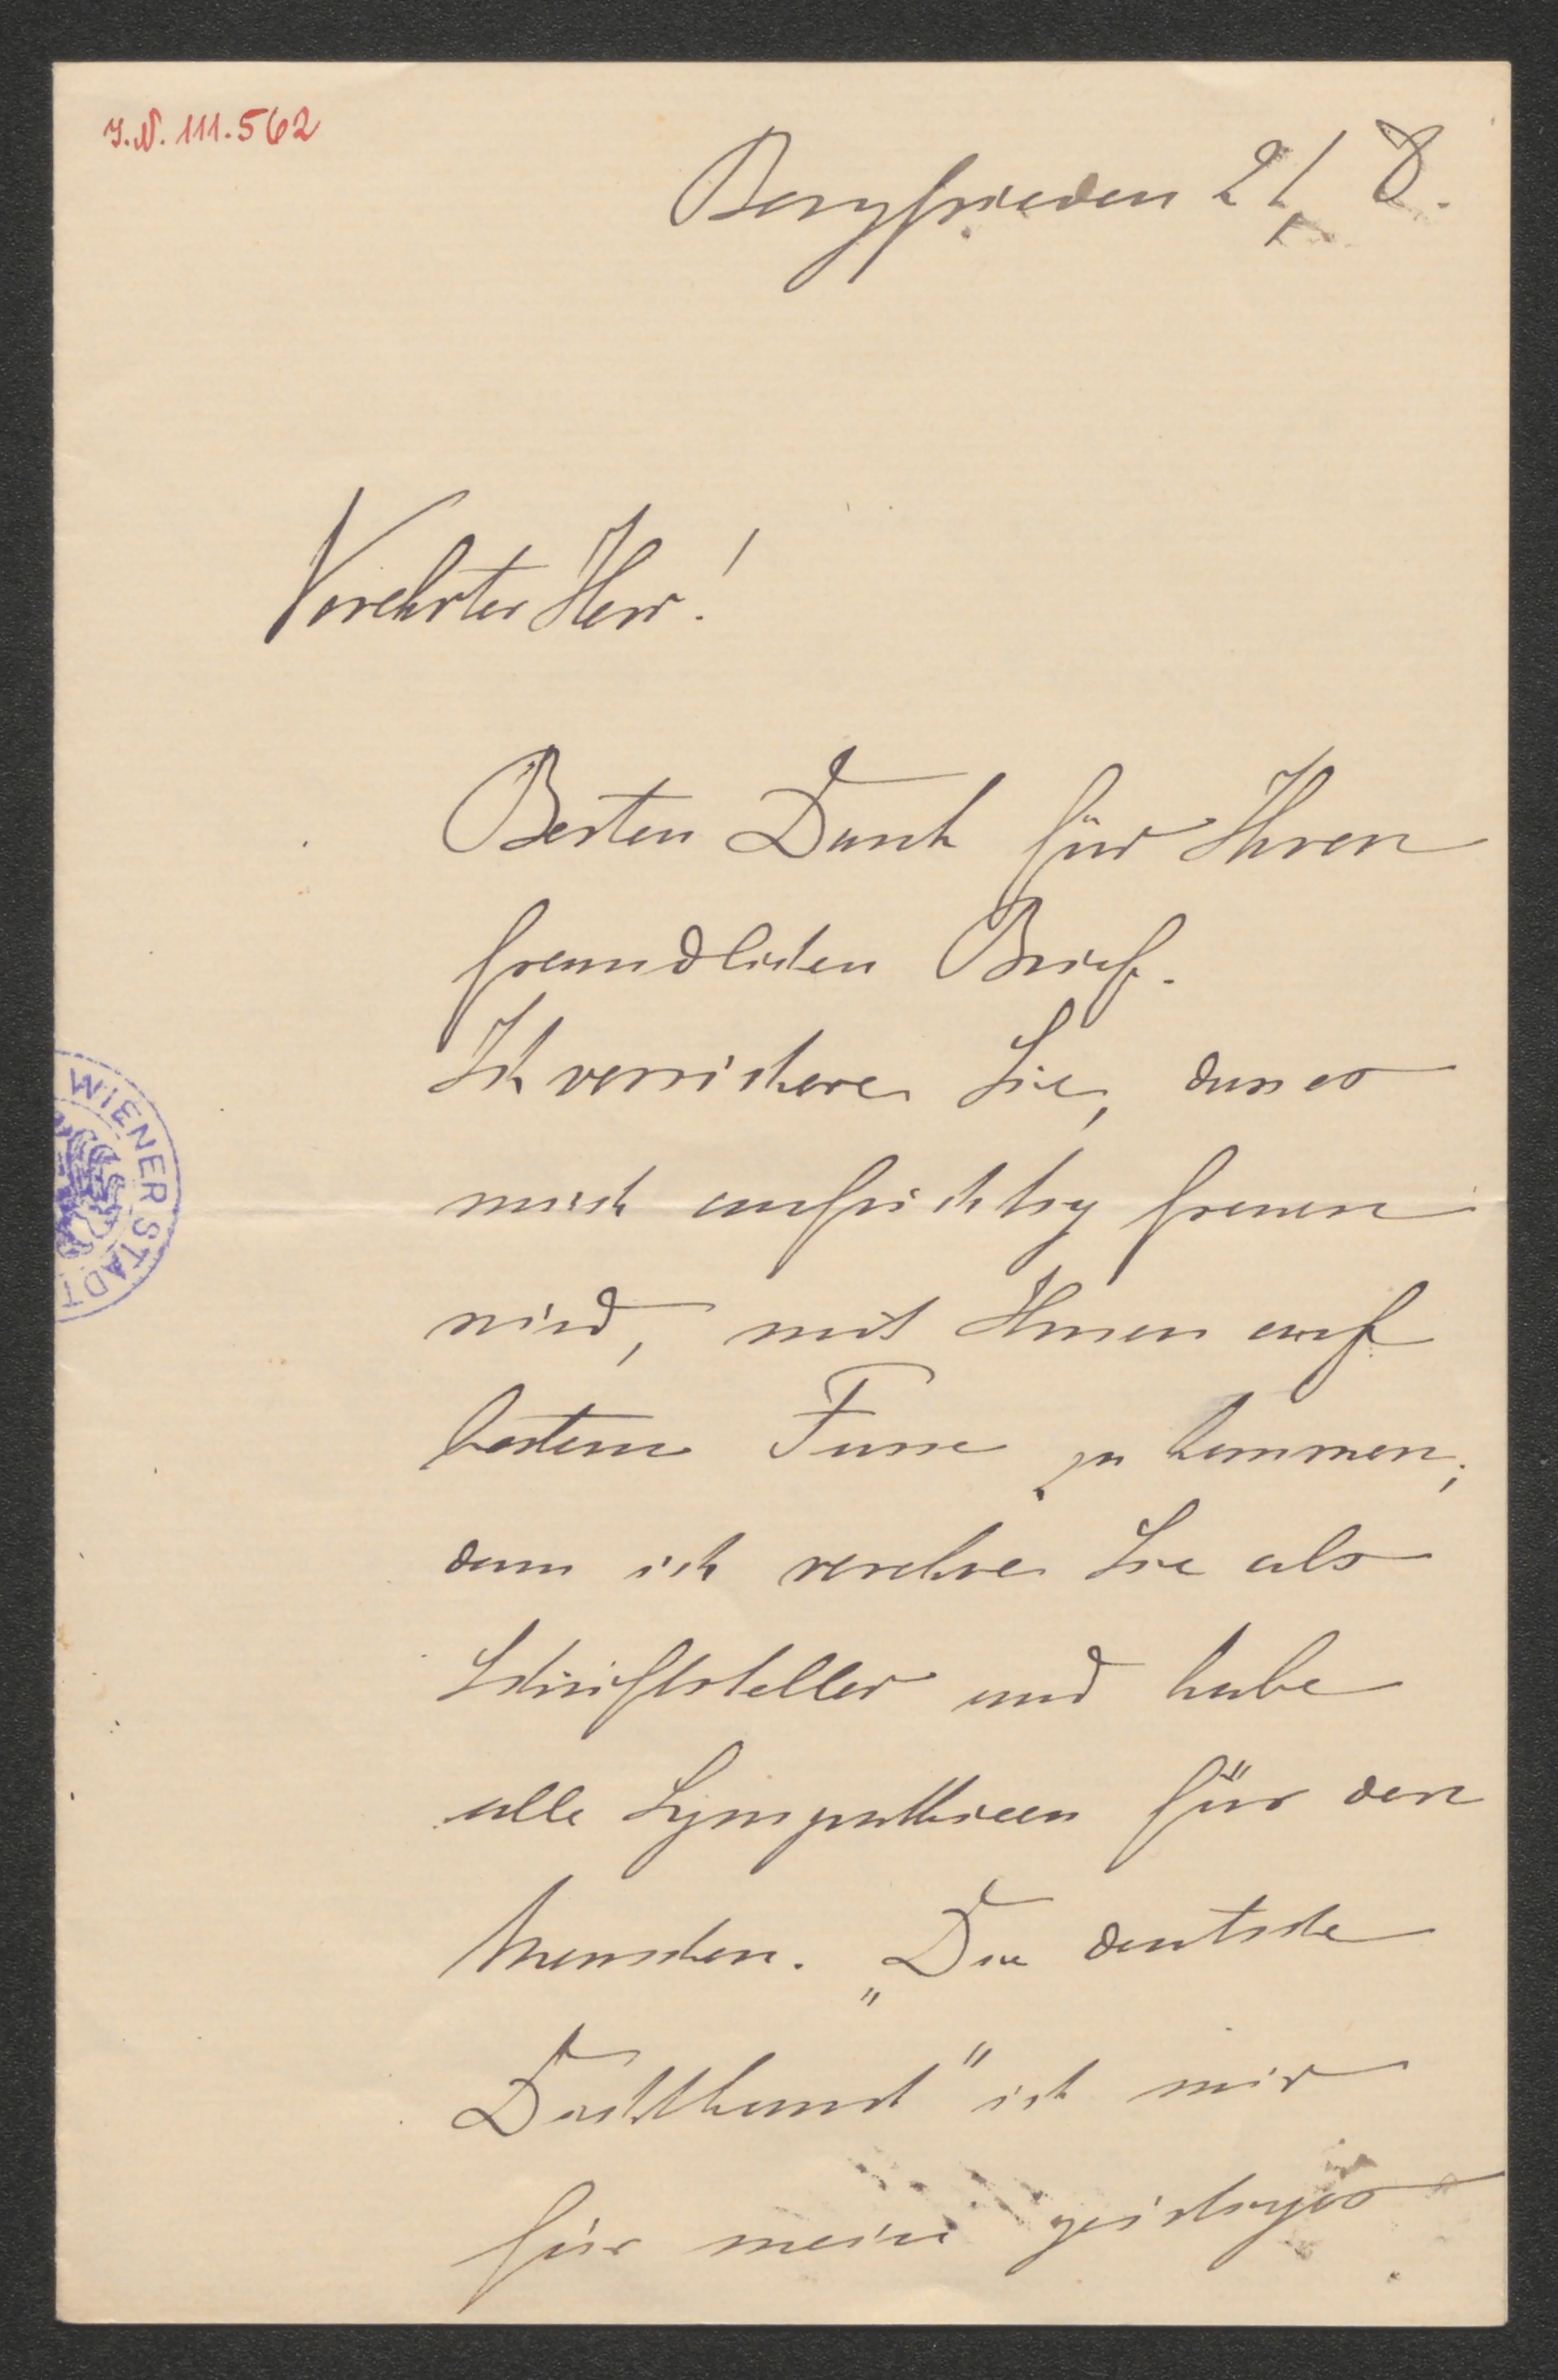 J.N. 111.562
Bergfrieden 21/8.
Verehrter Herr!
Besten Dank für Ihren
freundlichen Brief.
Ich versichere Sie, dass es
mich aufrichtig freuen
wird, mit Ihnen auf
bestem Fusse zu kommen;
denn ich verehre Sie als
Schriftsteller und habe
alle Sympathieen für den
Menschen. „Die deutsche
Dichtkunst" ist mir
für mein geistiges
WIENER STADT